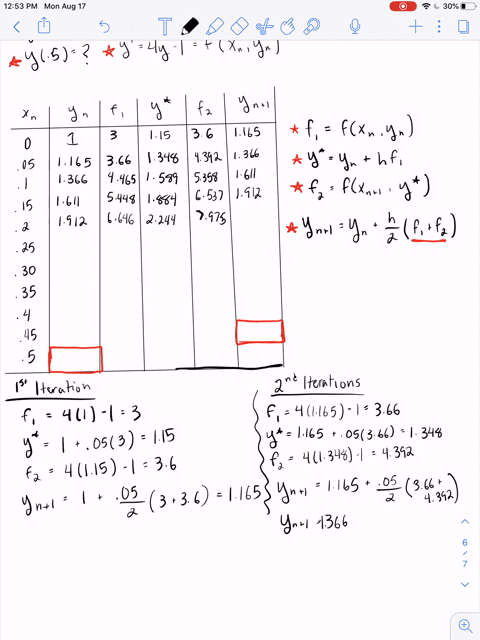 12:53 PM Mon Aug 17
30%
T
★ y(.5) = ? ★ y' = 4y - 1 = f(xn, yn)
xn yn f1 y* f2 yn+1
0 1 3 1.15 3.6 1.165
.05 1.165 3.66 1.348 4.392 1.366
.1 1.366 4.465 1.589 5.358 1.611
.15 1.611 5.448 1.884 6.537 1.912
.2 1.912 6.646 2.244 7.975
.25
.30
.35
.4
.45
.5
★ f1 = f(xn, yn)
★ y* = yn + hf1
★ f2 = f(xn+1, y*)
★ yn+1 = yn + h/2 (f1 + f2)
1st Iteration
f1 = 4(1) - 1 = 3
y* = 1 + .05(3) = 1.15
f2 = 4(1.15) - 1 = 3.6
yn+1 = 1 + .05/2 (3 + 3.6) = 1.165
2nd Iterations
f1 = 4(1.165) - 1 = 3.66
y* = 1.165 + .05(3.66) = 1.348
f2 = 4(1.348) - 1 = 4.392
yn+1 = 1.165 + .05/2 (3.66 + 4.392)
yn+1 = 1.366
6
/
7